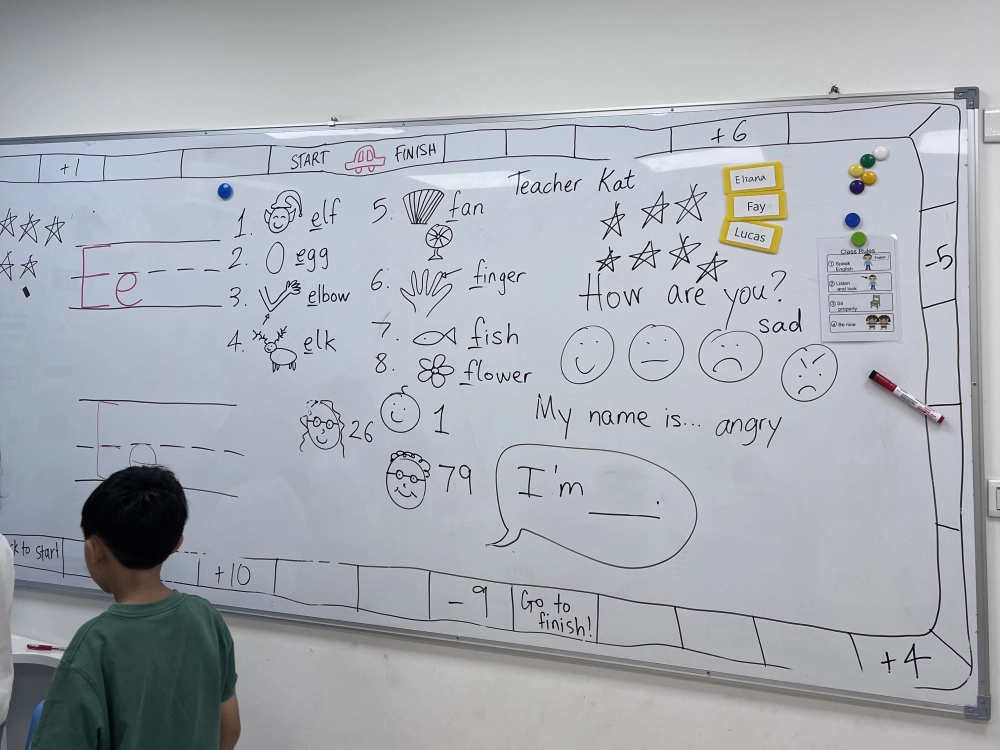 +1
START FINISH
+6
Teacher Kat
Eliana
Fay
Lucas
1. elf
2. egg
3. elbow
4. elk
5. fan
6. finger
7. fish
8. flower
Ee
E
How are you?
sad
angry
My name is...
I'm ____.
26
1
79
Class Rules
1 Speak English
2 Listen and look
3 Sit properly
4 Be nice
-5
to start
+10
-9
Go to finish!
+4